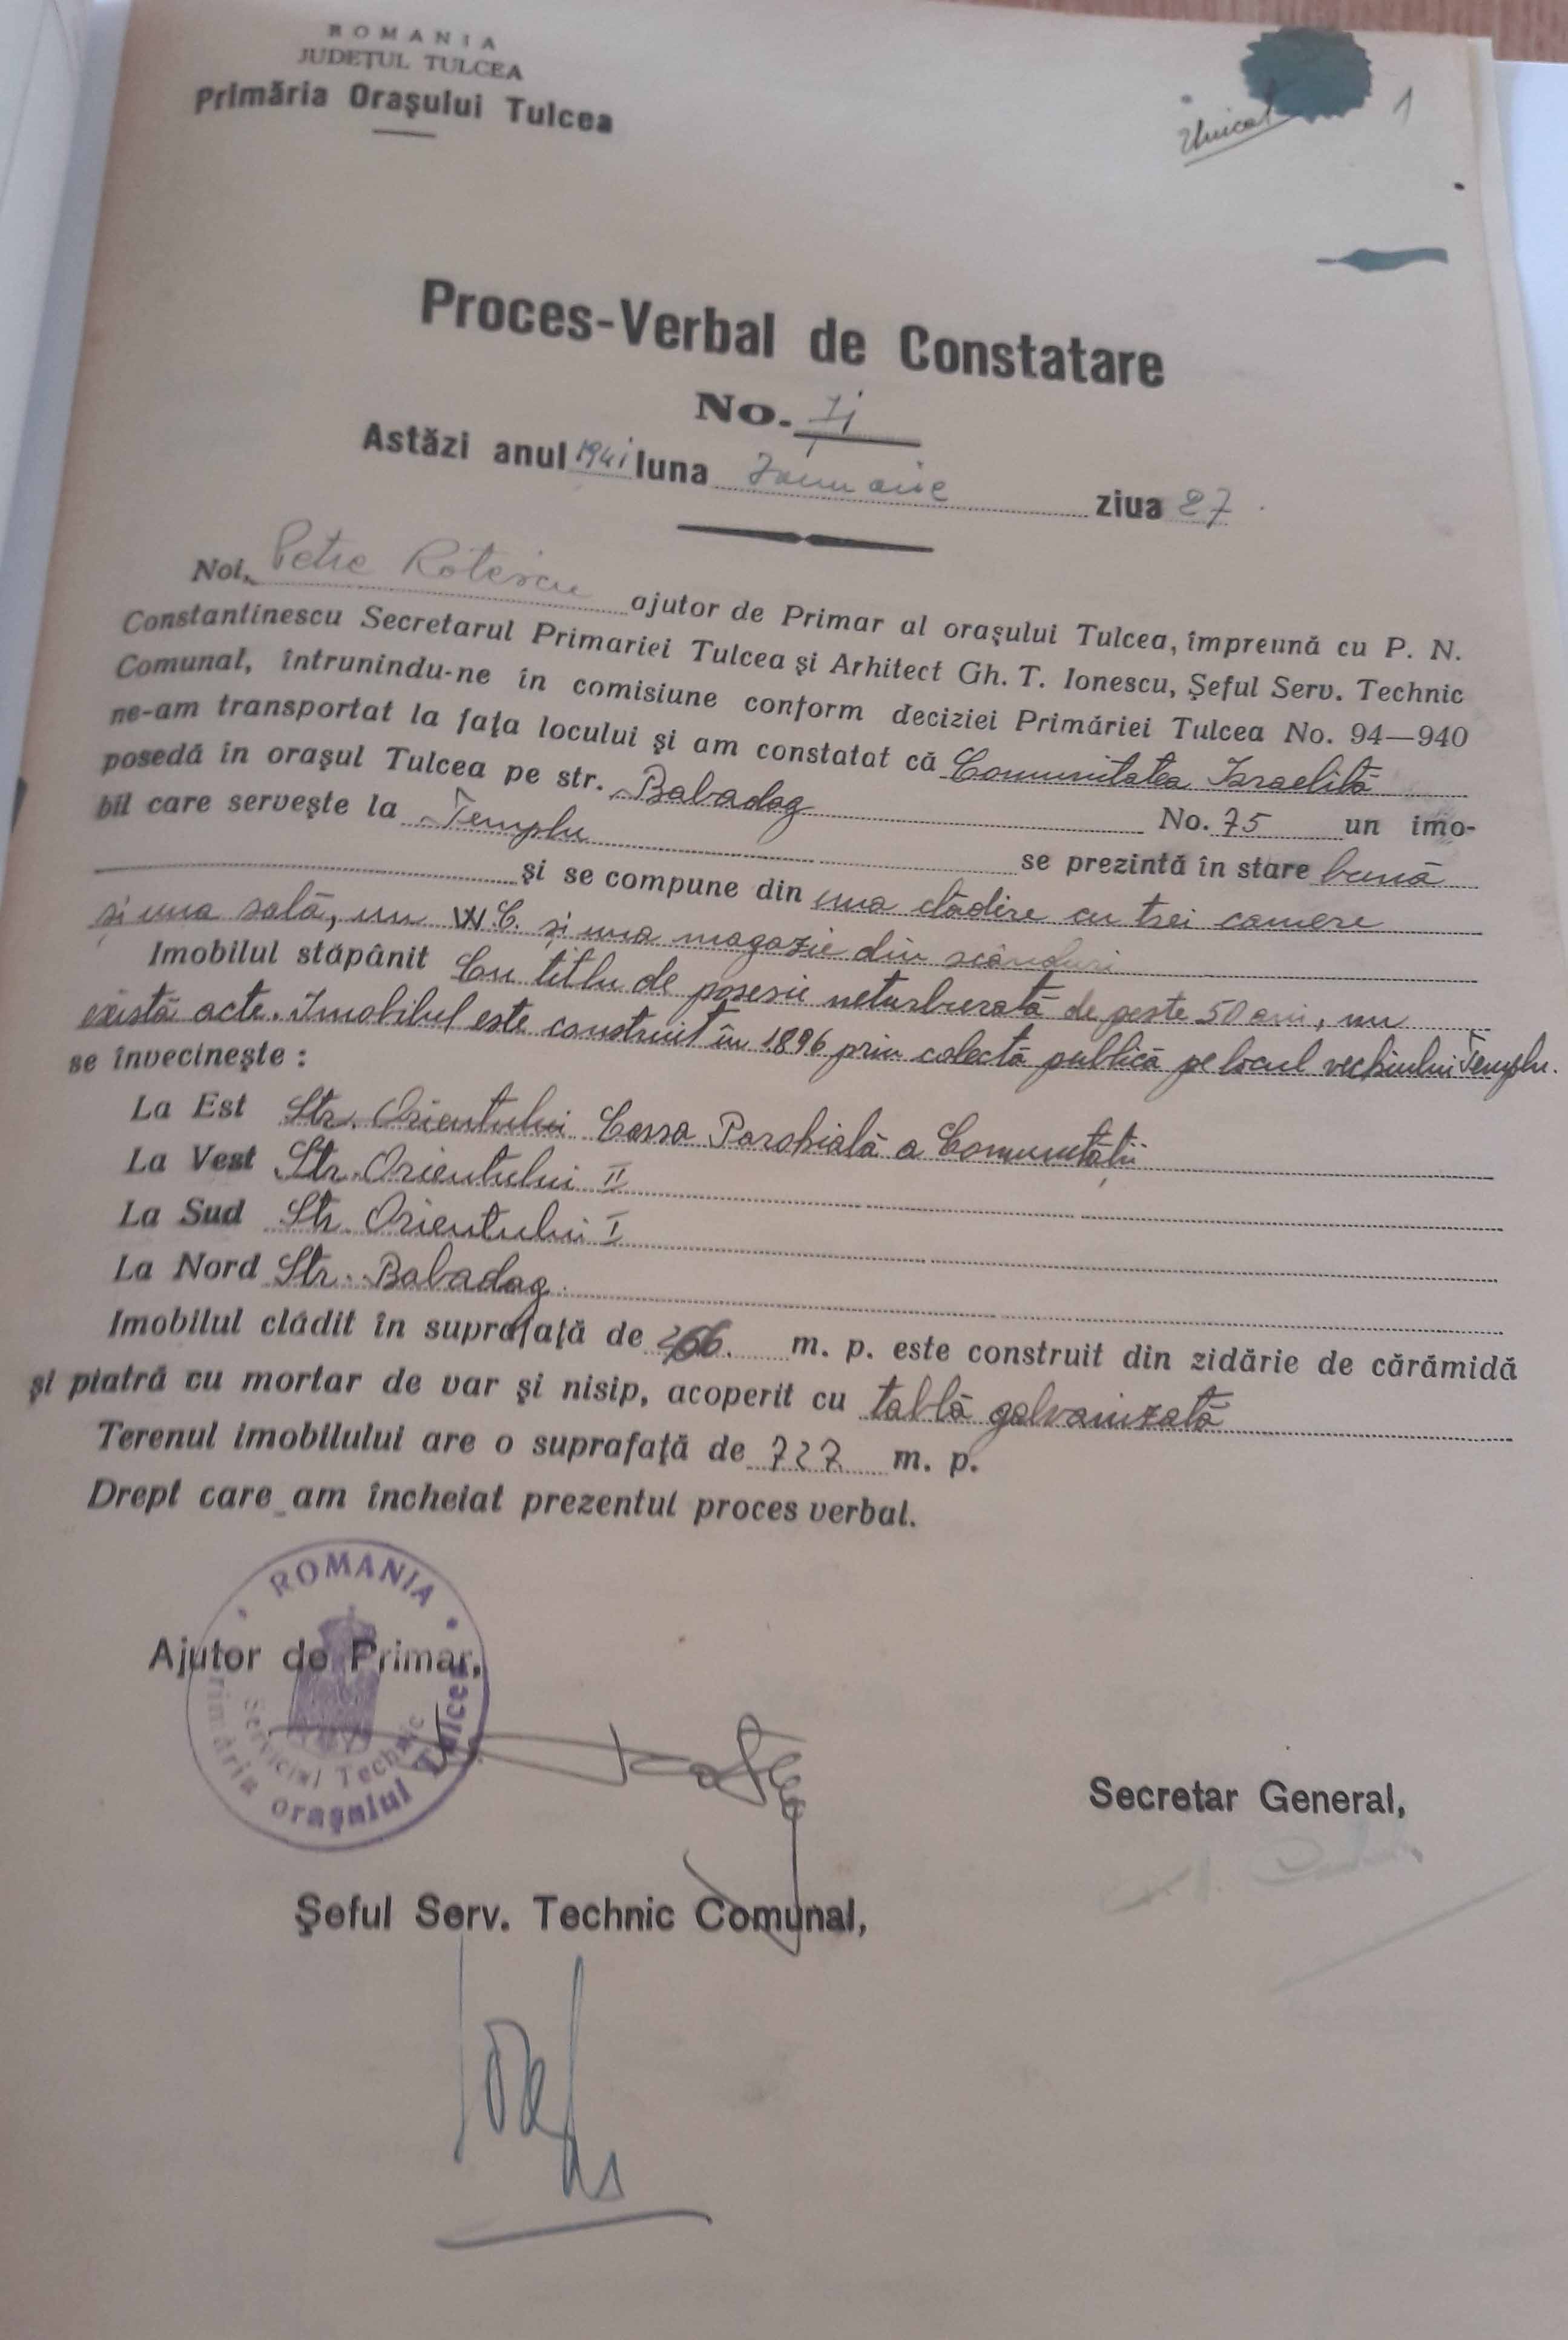 ROMANIA
JUDEŢUL TULCEA
Primăria Oraşului Tulcea
Unicat
1
Proces-Verbal de Constatare
No.
Astăzi anul 1941 luna Ianuarie ziua 27
Noi, Petre Rotescu ajutor de Primar al oraşului Tulcea, împreună cu P. N.
Constantinescu Secretarul Primariei Tulcea şi Arhitect Gh. T. Ionescu, Şeful Serv. Technic
Comunal, întrunindu-ne în comisiune conform deciziei Primăriei Tulcea No. 94—940
ne-am transportat la faţa locului şi am constatat că Comunitatea Israelită
posedă în oraşul Tulcea pe str. Babadag No. 75 un imo-
bil care serveşte la Templu se prezintă în stare bună
şi se compune din una clădire cu trei camere
şi una sală, un W.C. şi una magazie din scânduri
Imobilul stăpânit Cu titlu de posesie neturburată de peste 50 ani, nu
există acte. Imobilul este construit în 1896 prin colectă publică pe locul vechiului Templu.
se învecineşte :
La Est Str. Orientului Cassa Parohială a Comunităţii
La Vest Str. Orientului II
La Sud Str. Orientului I
La Nord Str. Babadag.
Imobilul clădit în suprafaţă de m. p. este construit din zidărie de cărămidă
şi piatră cu mortar de var şi nisip, acoperit cu tablă galvanizată
Terenul imobilului are o suprafaţă de 727 m. p.
Drept care am încheiat prezentul proces verbal.
ROMANIA
Primăria oraşului Tulcea
Serviciul Technic
Ajutor de Primar,
Secretar General,
Şeful Serv. Technic Comunal,